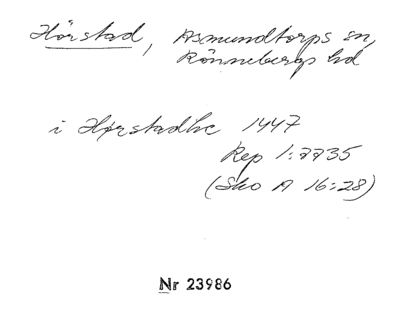 Hörstad, Asmundtorps sn,
Rönnebergs hd
i Hørstadhe 1447
Rep 1:7735
(Sko A 16:28)
Nr 23986